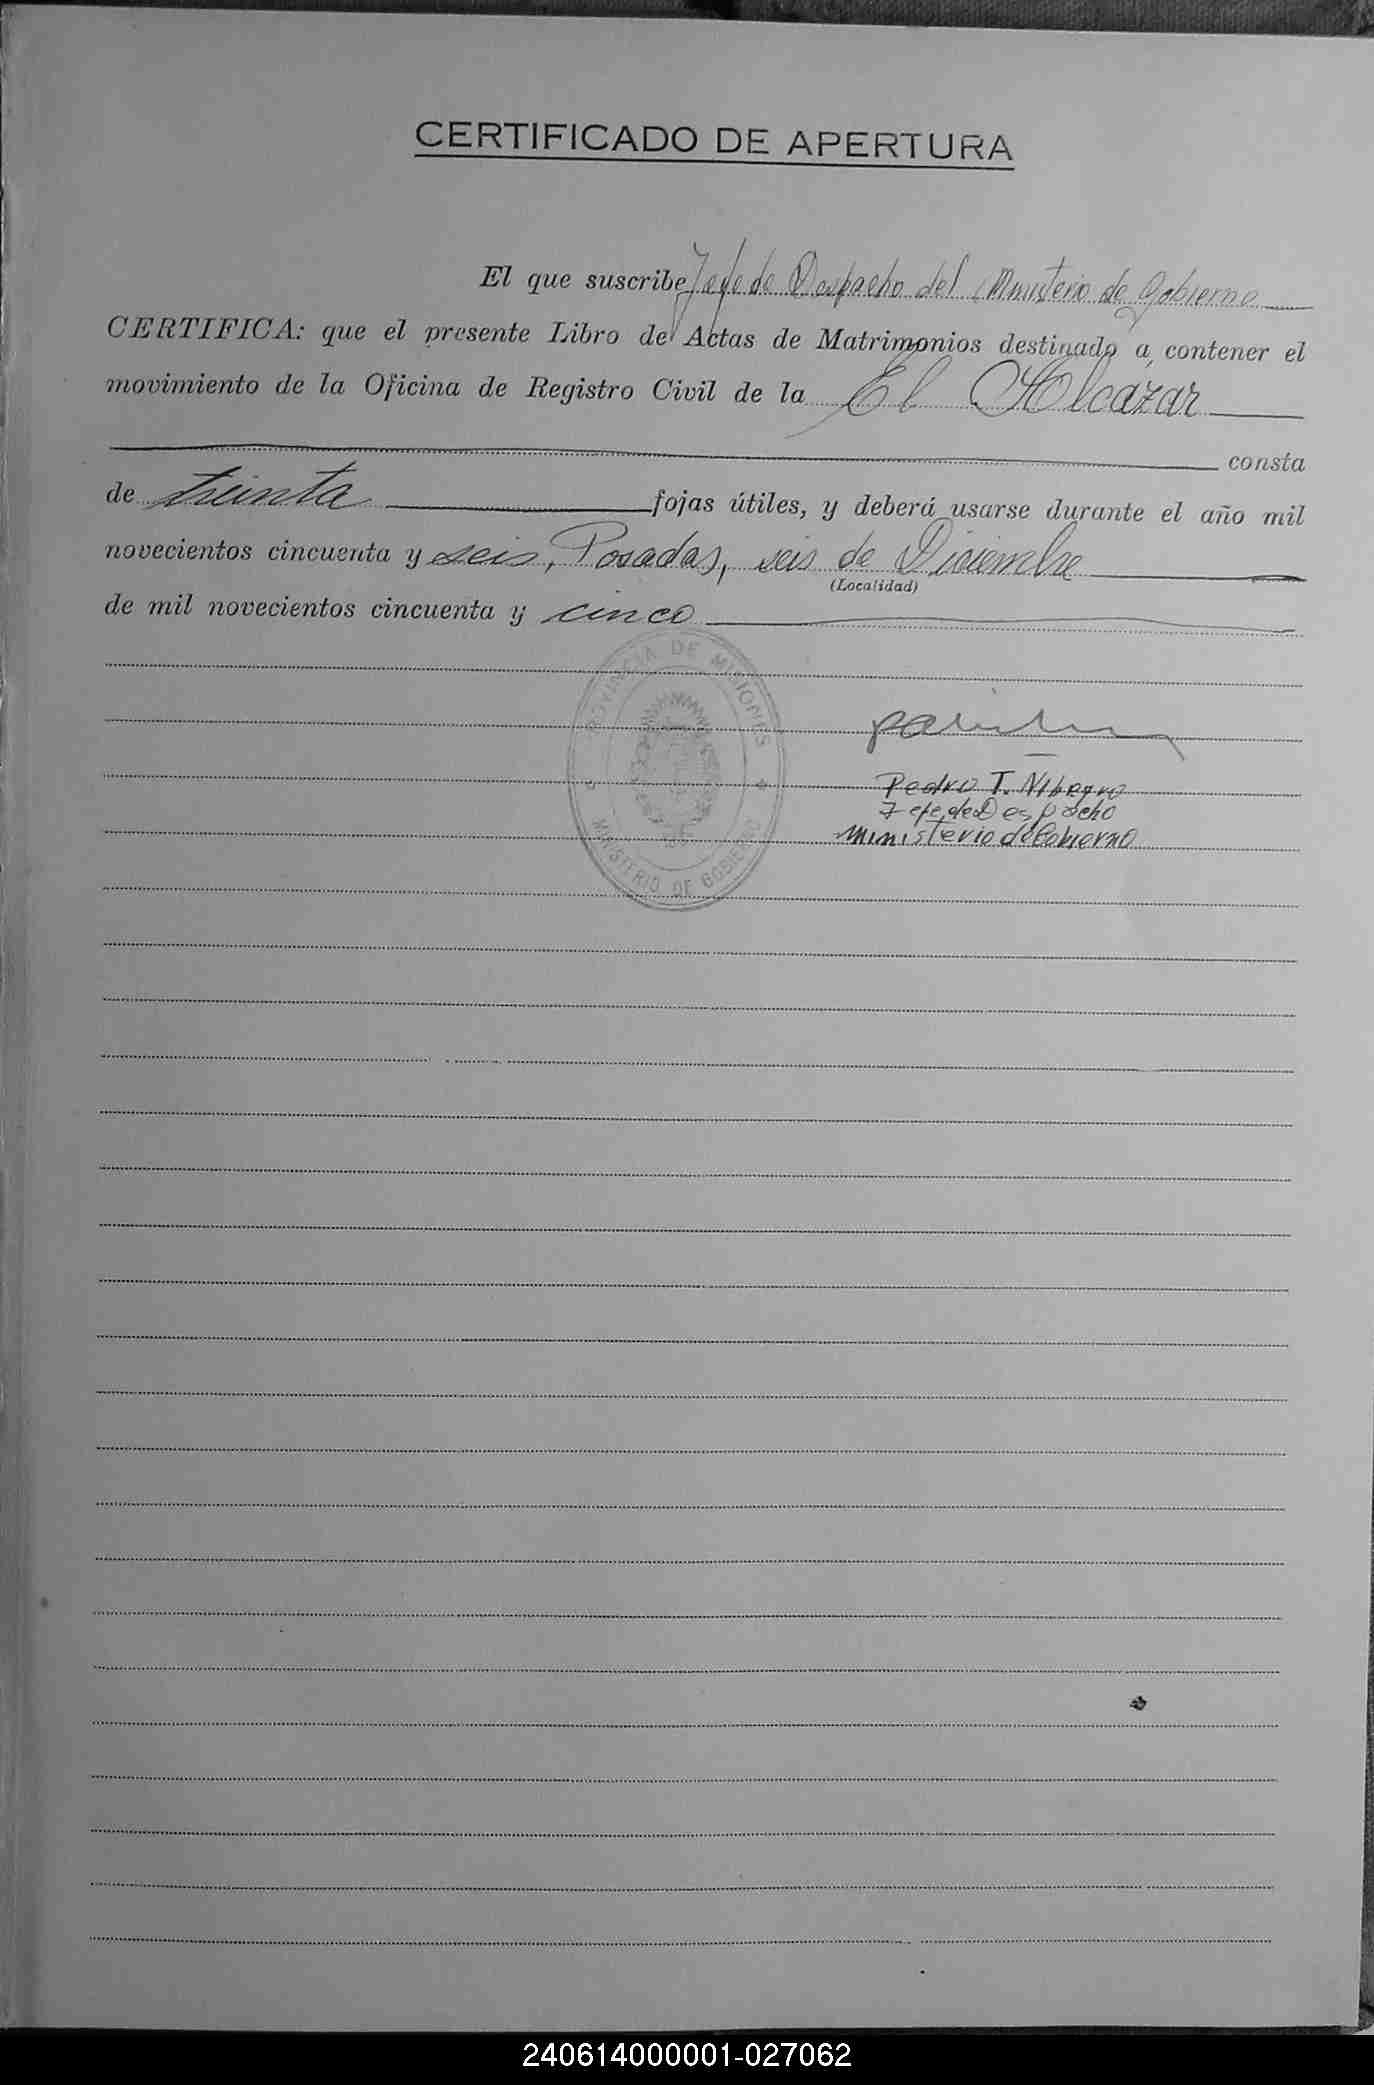 CERTIFICADO DE APERTURA
El que suscribe Jefe de Despacho del Ministerio de Gobierno
CERTIFICA: que el presente Libro de Actas de Matrimonios destinado a contener el
movimiento de la Oficina de Registro Civil de la El Alcázar
consta
de treinta fojas útiles, y deberá usarse durante el año mil
novecientos cincuenta y seis, Posadas, seis de Diciembre
(Localidad)
de mil novecientos cincuenta y cinco
PROVINCIA DE MISIONES
MINISTERIO DE GOBIERNO
Pedro T.
Jefe de Despacho
Ministerio de Gobierno
240614000001-027062